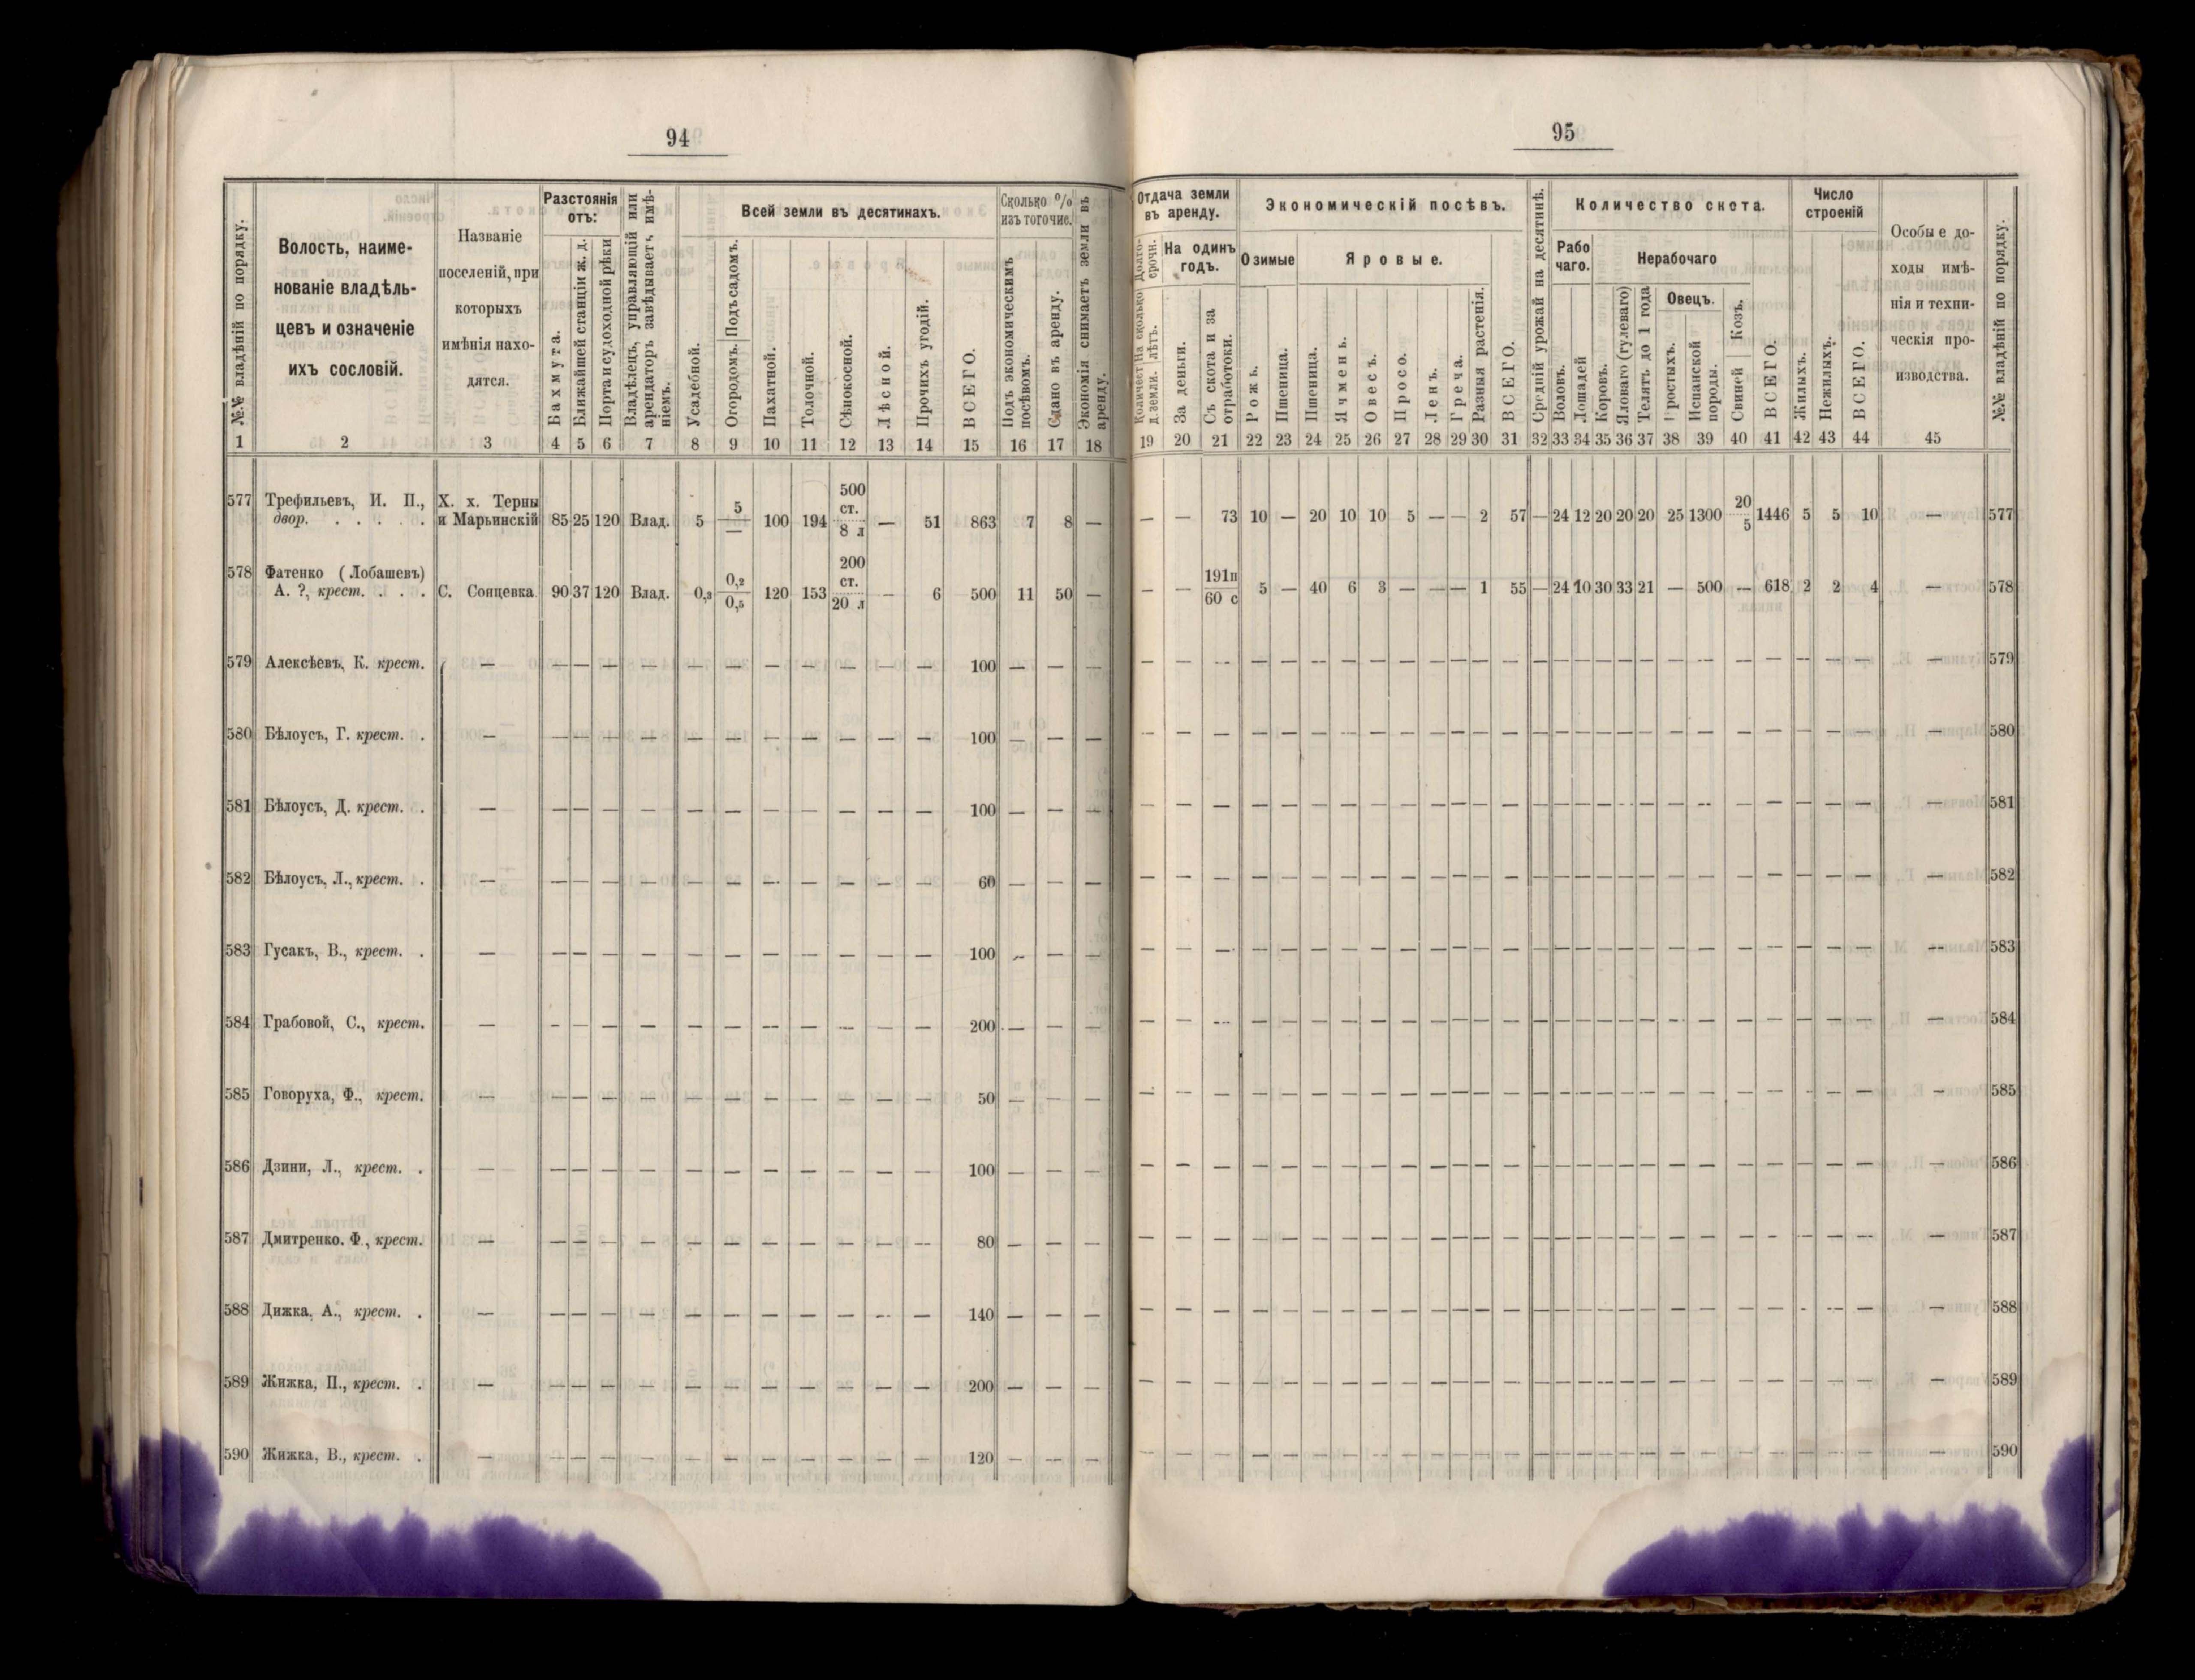 94
№№ владѣній по порядку.
Волость, наиме-
нованіе владѣль-
цевъ и означеніе
ихъ сословій.
Названіе
поселеній, при
которыхъ
имѣнія нахо-
дятся.
Разстоянія
отъ:
Бахмута.
Ближайшей станціи ж. д.
Порта и судоходной рѣки
Владѣлецъ, управляющій или
арендаторъ завѣдываетъ имѣ-
ніемъ.
Всей земли въ десятинахъ.
Усадебной.
Огородомъ. Подъ садомъ.
Пахатной.
Толочной.
Сѣнокосной.
Лѣсной.
Прочихъ угодій.
ВСЕГО.
Сколько %
изъ того чис.
Подъ экономическимъ
посѣвомъ.
Сдано въ аренду.
Экономія снимаетъ земли въ
аренду.
1 2 3 4 5 6 7 8 9 10 11 12 13 14 15 16 17 18
577 Трефильевъ, И. П., Х. х. Терны 5 500 ст.
двор. . . . . . и Марьинскій 85 25 120 Влад. 5 — 100 194 8 л — 51 863 7 8 —
578 Фатенко (Лобашевъ) 0,2 200 ст.
А. ?, крест. . . . С. Сонцевка 90 37 120 Влад. 0,3 0,5 120 153 20 л — 6 500 11 50 —
579 Алексѣевъ, К. крест. — — — — — — — — — — — — 100 — — —
580 Бѣлоусъ, Г. крест. . — — — — — — — — — — — — 100 — — —
581 Бѣлоусъ, Д. крест. . — — — — — — — — — — — — 100 — — —
582 Бѣлоусъ, Л., крест. . — — — — — — — — — — — — 60 — — —
583 Гусакъ, В., крест. . — — — — — — — — — — — — 100 — — —
584 Грабовой, С., крест. — — — — — — — — — — — — 200 — — —
585 Говоруха, Ф., крест. — — — — — — — — — — — — 50 — — —
586 Дзини, Л., крест. . — — — — — — — — — — — — 100 — — —
587 Дмитренко. Ф., крест. — — — — — — — — — — — — 80 — — —
588 Дижка, А., крест. . — — — — — — — — — — — — 140 — — —
589 Жижка, П., крест. . — — — — — — — — — — — — 200 — — —
590 Жижка, В., крест. . — — — — — — — — — — — — 120 — — —
95
Отдача земли
въ аренду.
Долго-
срочн.
Количест. На сколько
д. земли. лѣтъ.
На одинъ
годъ.
За деньги.
Съ скота и за
отработоки.
Экономическій посѣвъ.
Озимые
Рожь.
Пшеница.
Яровые.
Пшеница.
Ячмень.
Овесъ.
Просо.
Ленъ.
Греча.
Разныя растенія.
ВСЕГО.
Средній урожай на десятинѣ.
Количество скота.
Рабо
чаго.
Воловъ.
Лошадей
Нерабочаго
Коровъ.
Яловаго (гулеваго)
Телятъ до 1 года
Овецъ.
Простыхъ.
Испанской
породы.
Свиней Козъ.
ВСЕГО.
Число
строеній
Жилыхъ.
Нежилыхъ.
ВСЕГО.
Особые до-
ходы имѣ-
нія и техни-
ческія про-
изводства.
№№ владѣній по порядку.
19 20 21 22 23 24 25 26 27 28 29 30 31 32 33 34 35 36 37 38 39 40 41 42 43 44 45
— — 73 10 — 20 10 10 5 — — 2 57 — 24 12 20 20 20 25 1300 20 5 1446 5 5 10 — 577
— — 191п 60 с 5 — 40 6 3 — — — 1 55 — 24 10 30 33 21 — 500 — 618 2 2 4 — 578
— — — — — — — — — — — — — — — — — — — — — — — — — — — 579
— — — — — — — — — — — — — — — — — — — — — — — — — — — 580
— — — — — — — — — — — — — — — — — — — — — — — — — — — 581
— — — — — — — — — — — — — — — — — — — — — — — — — — — 582
— — — — — — — — — — — — — — — — — — — — — — — — — — — 583
— — — — — — — — — — — — — — — — — — — — — — — — — — — 584
— — — — — — — — — — — — — — — — — — — — — — — — — — — 585
— — — — — — — — — — — — — — — — — — — — — — — — — — — 586
— — — — — — — — — — — — — — — — — — — — — — — — — — — 587
— — — — — — — — — — — — — — — — — — — — — — — — — — — 588
— — — — — — — — — — — — — — — — — — — — — — — — — — — 589
— — — — — — — — — — — — — — — — — — — — — — — — — — — 590